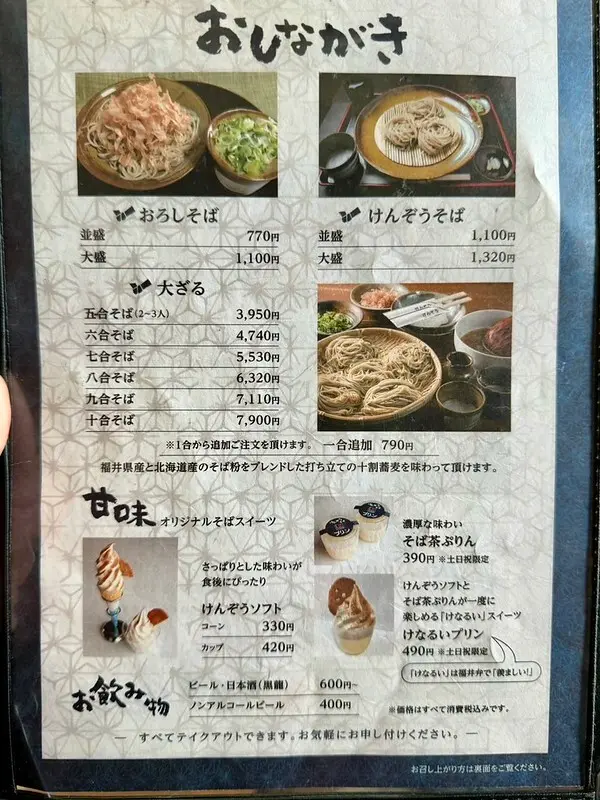 おしながき
おろしそば
並盛 770円
大盛 1,100円
けんぞうそば
並盛 1,100円
大盛 1,320円
大ざる
五合そば(2~3人) 3,950円
六合そば 4,740円
七合そば 5,530円
八合そば 6,320円
九合そば 7,110円
十合そば 7,900円
※1合から追加ご注文を頂けます。 一合追加 790円
福井県産と北海道産のそば粉をブレンドした打ち立ての十割蕎麦を味わって頂けます。
甘味 オリジナルそばスイーツ
さっぱりとした味わいが
食後にぴったり
けんぞうソフト
コーン 330円
カップ 420円
濃厚な味わい
そば茶ぷりん
390円 ※土日祝限定
けんぞうソフトと
そば茶ぷりんが一度に
楽しめる「けなるい」スイーツ
けなるいプリン
490円 ※土日祝限定
「けなるい」は福井弁で「羨ましい!」
お飲み物
ビール・日本酒(黒龍) 600円~
ノンアルコールビール 400円
※価格はすべて消費税込みです。
― すべてテイクアウトできます。お気軽にお申し付けください。 ―
お召し上がり方は裏面をご覧ください。